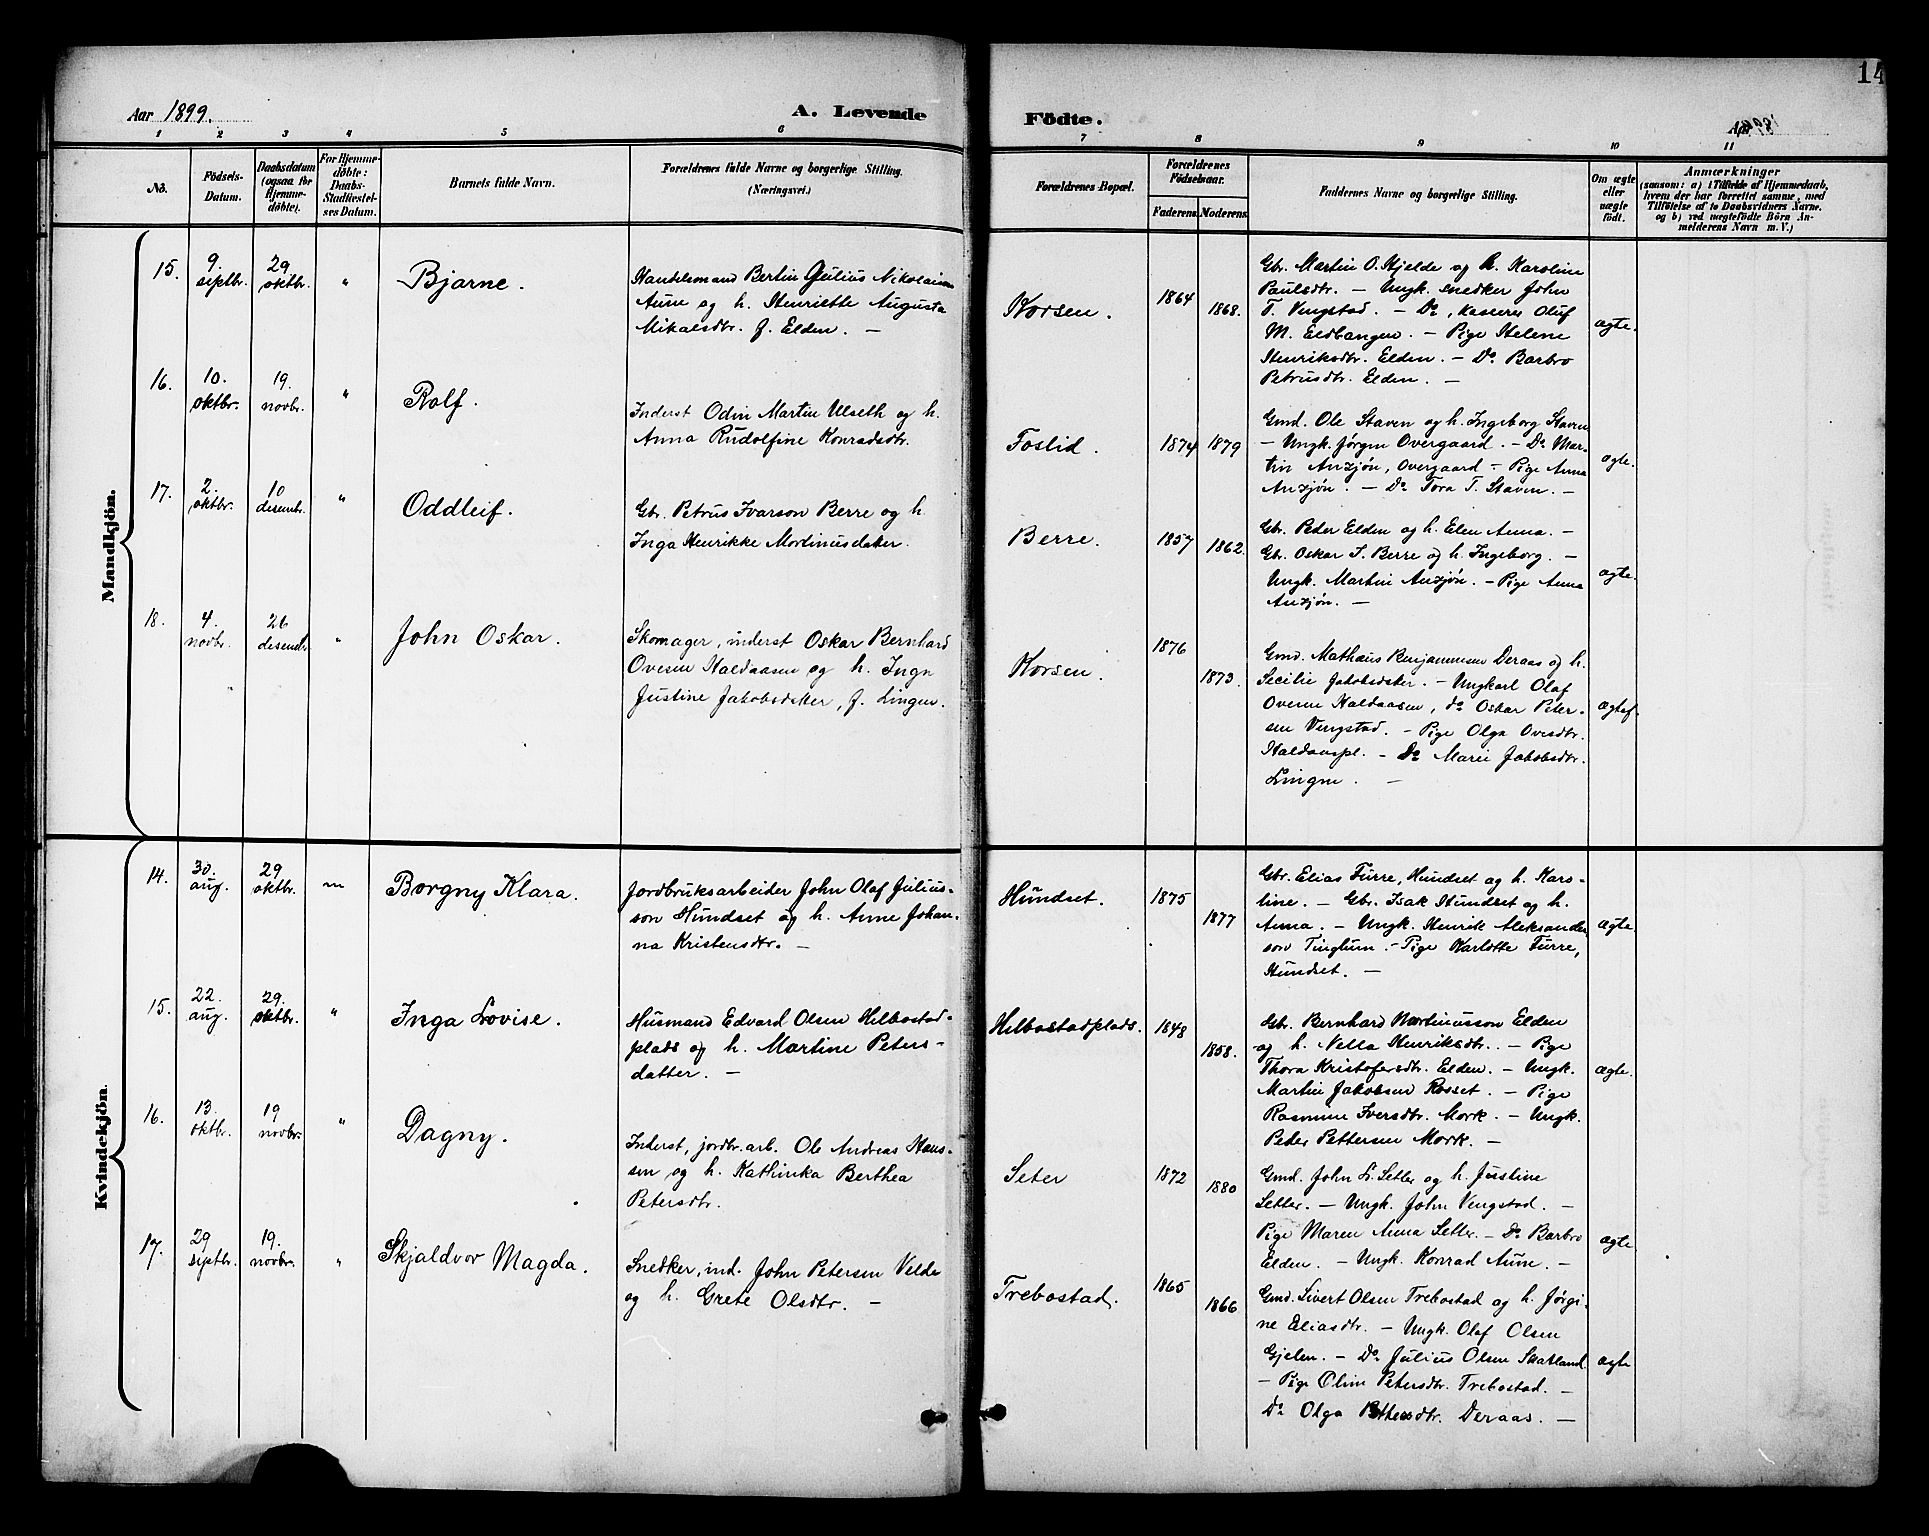 14
Aar 1899.
A. Levende
Födte.
1 2 3 4 5 6
7 8 9 10 11
No.
Födsels-
Datum.
Daabsdatum
(ogsaa for
Hjemme-
døbte).
For Hjemme-
døbte:
Daabs-
Stadfæstel-
ses Datum.
Barnets fulde Navn.
Forældrenes fulde Navne og borgerlige Stilling.
(Næringsvei.)
Forældrenes Bopæl.
Forældrenes
Födselsaar.
Faderens. Moderens.
Faddernes Navne og borgerlige Stilling.
Om ægte
eller
uægte
födt.
Anmærkninger
(saasom: a) i Tilfælde af Hjemmedaab,
hvem der har forrettet samme, med
Tilføielse af to Daabsvidners Navne,
og b) ved uægtefödte Börn An-
melderens Navn m. V.)
Mandkjön.
15.
9.
septbr.
29
oktbr.
"
Bjarne.
Handelsmand Bertin Julius Nikolaisen
Aune og h. Henriette Augusta
Mikalsdtr. f. Elden. —
Korsen.
1864
1868.
Gbr. Martin O. Hjelde og h. Karoline
Paulsdtr. — Ungk. snedker John
T. Vengstad. — Do, kaserer Oluf
M. Eidbangen. — Pige Helene
Henriksdtr. Elden. — Do Barbro
Petrusdtr. Elden. —
ægte.
16.
10.
oktbr.
19.
novbr.
"
Rolf.
Inderst Odin Martin Ulseth og h.
Anna Rudolfine Konradsdtr.
Foslid.
1874
1879
Gmd. Ole Staven og h. Ingeborg Staven
— Ungk. Jørgen Overgaard. — Do Mar-
tin Anzjøn, Overgaard — Pige Anna
Anzjøn. — Do Tora T. Staven. —
ægte.
17.
2.
oktbr.
10
desembr.
"
Oddleif.
Gbr. Petrus Ivarson Berre og h.
Inga Henrikke Mortinusdater.
Berre.
1857
1862.
Gbr. Peder Elden og h. Elen Anna. —
Gbr. Oskar I. Berre og h. Ingeborg. —
Ungk. Martin Anzjøn. — Pige Anna
Anzjøn. —
ægte.
18.
4.
novbr.
26
desembr.
"
John Oskar.
Skomager, inderst Oskar Bernhard
Ovesen Haldaasen og h. Inga
Justine Jakobsdatter, f. Lingen.
Korsen.
1876
1873.
Gmd. Mathæus Benjaminsen Deraas og h.
Secilie Jakobsdatter. — Ungkarl Olaf
Ovesen Haldaasen, do Oskar Peter-
sen Vengstad. — Pige Olga Ovesdtr.
Haldaaspl. — Do Marie Jakobsdtr.
Lingen. —
ægtef.
Kvindekjön.
14.
30.
aug.
29
oktbr.
"
Borgny Klara.
Jordbruksarbeider John Olaf Julius-
son Hundset og h. Anne Johan-
na Kristensdtr. —
Hundset.
1875
1877
Gbr. Elias Furre, Hundset og h. Kars-
line. — Gbr. Isak Hundset og h.
Anna. — Ungk. Henrik Aleksander
son Tinglum. — Pige Karlotte Furre,
Hundset. —
ægte
15.
22.
aug.
29.
oktbr.
"
Inga Lovise.
Husmand Edvard Olsen Hilbostad-
plads og h. Martine Peters-
datter. —
Hilbostadplads.
1848
1858.
Gbr. Bernhard Martinusson Elden
og h. Nella Henriksdtr. — Pige
Thora Kristofersdtr. Elden. — Ungk.
Martin Jakobsen Rosset. — Pige
Rasmine Iversdtr. Mork. — Ungk.
Peder Pettersen Mork. —
ægte.
16.
13.
oktbr.
19
novbr.
"
Dagny.
Inderst, jordbr. arb. Ole Andreas Hans-
sen og h. Kathinka Berthea
Petersdtr.
Seter
1872
1880
Gmd. John L. Setter og h. Justine
Setter. — Ungk. John Vengstad. —
Pige Maren Anna Setter. — Do Barbro
Elden. — Ungk. Konrad Aune. —
ægte
17.
29
septbr.
19.
novbr.
"
Skjaldvor Magda.
Snedker, ind. John Petersen Velde
og h. Grete Olsdtr. —
Trebostad.
1865
1866
Gmd. Sivert Olsen Trebostad og h. Jørgi-
ne Eliasdtr. — Ungk. Olaf Olsen
Gjelen. — Do. Julius Olsen Skatland.
— Pige Oline Petersdtr. Trebostad. —
Do Olga Pettersdtr. Deraas. —
ægte